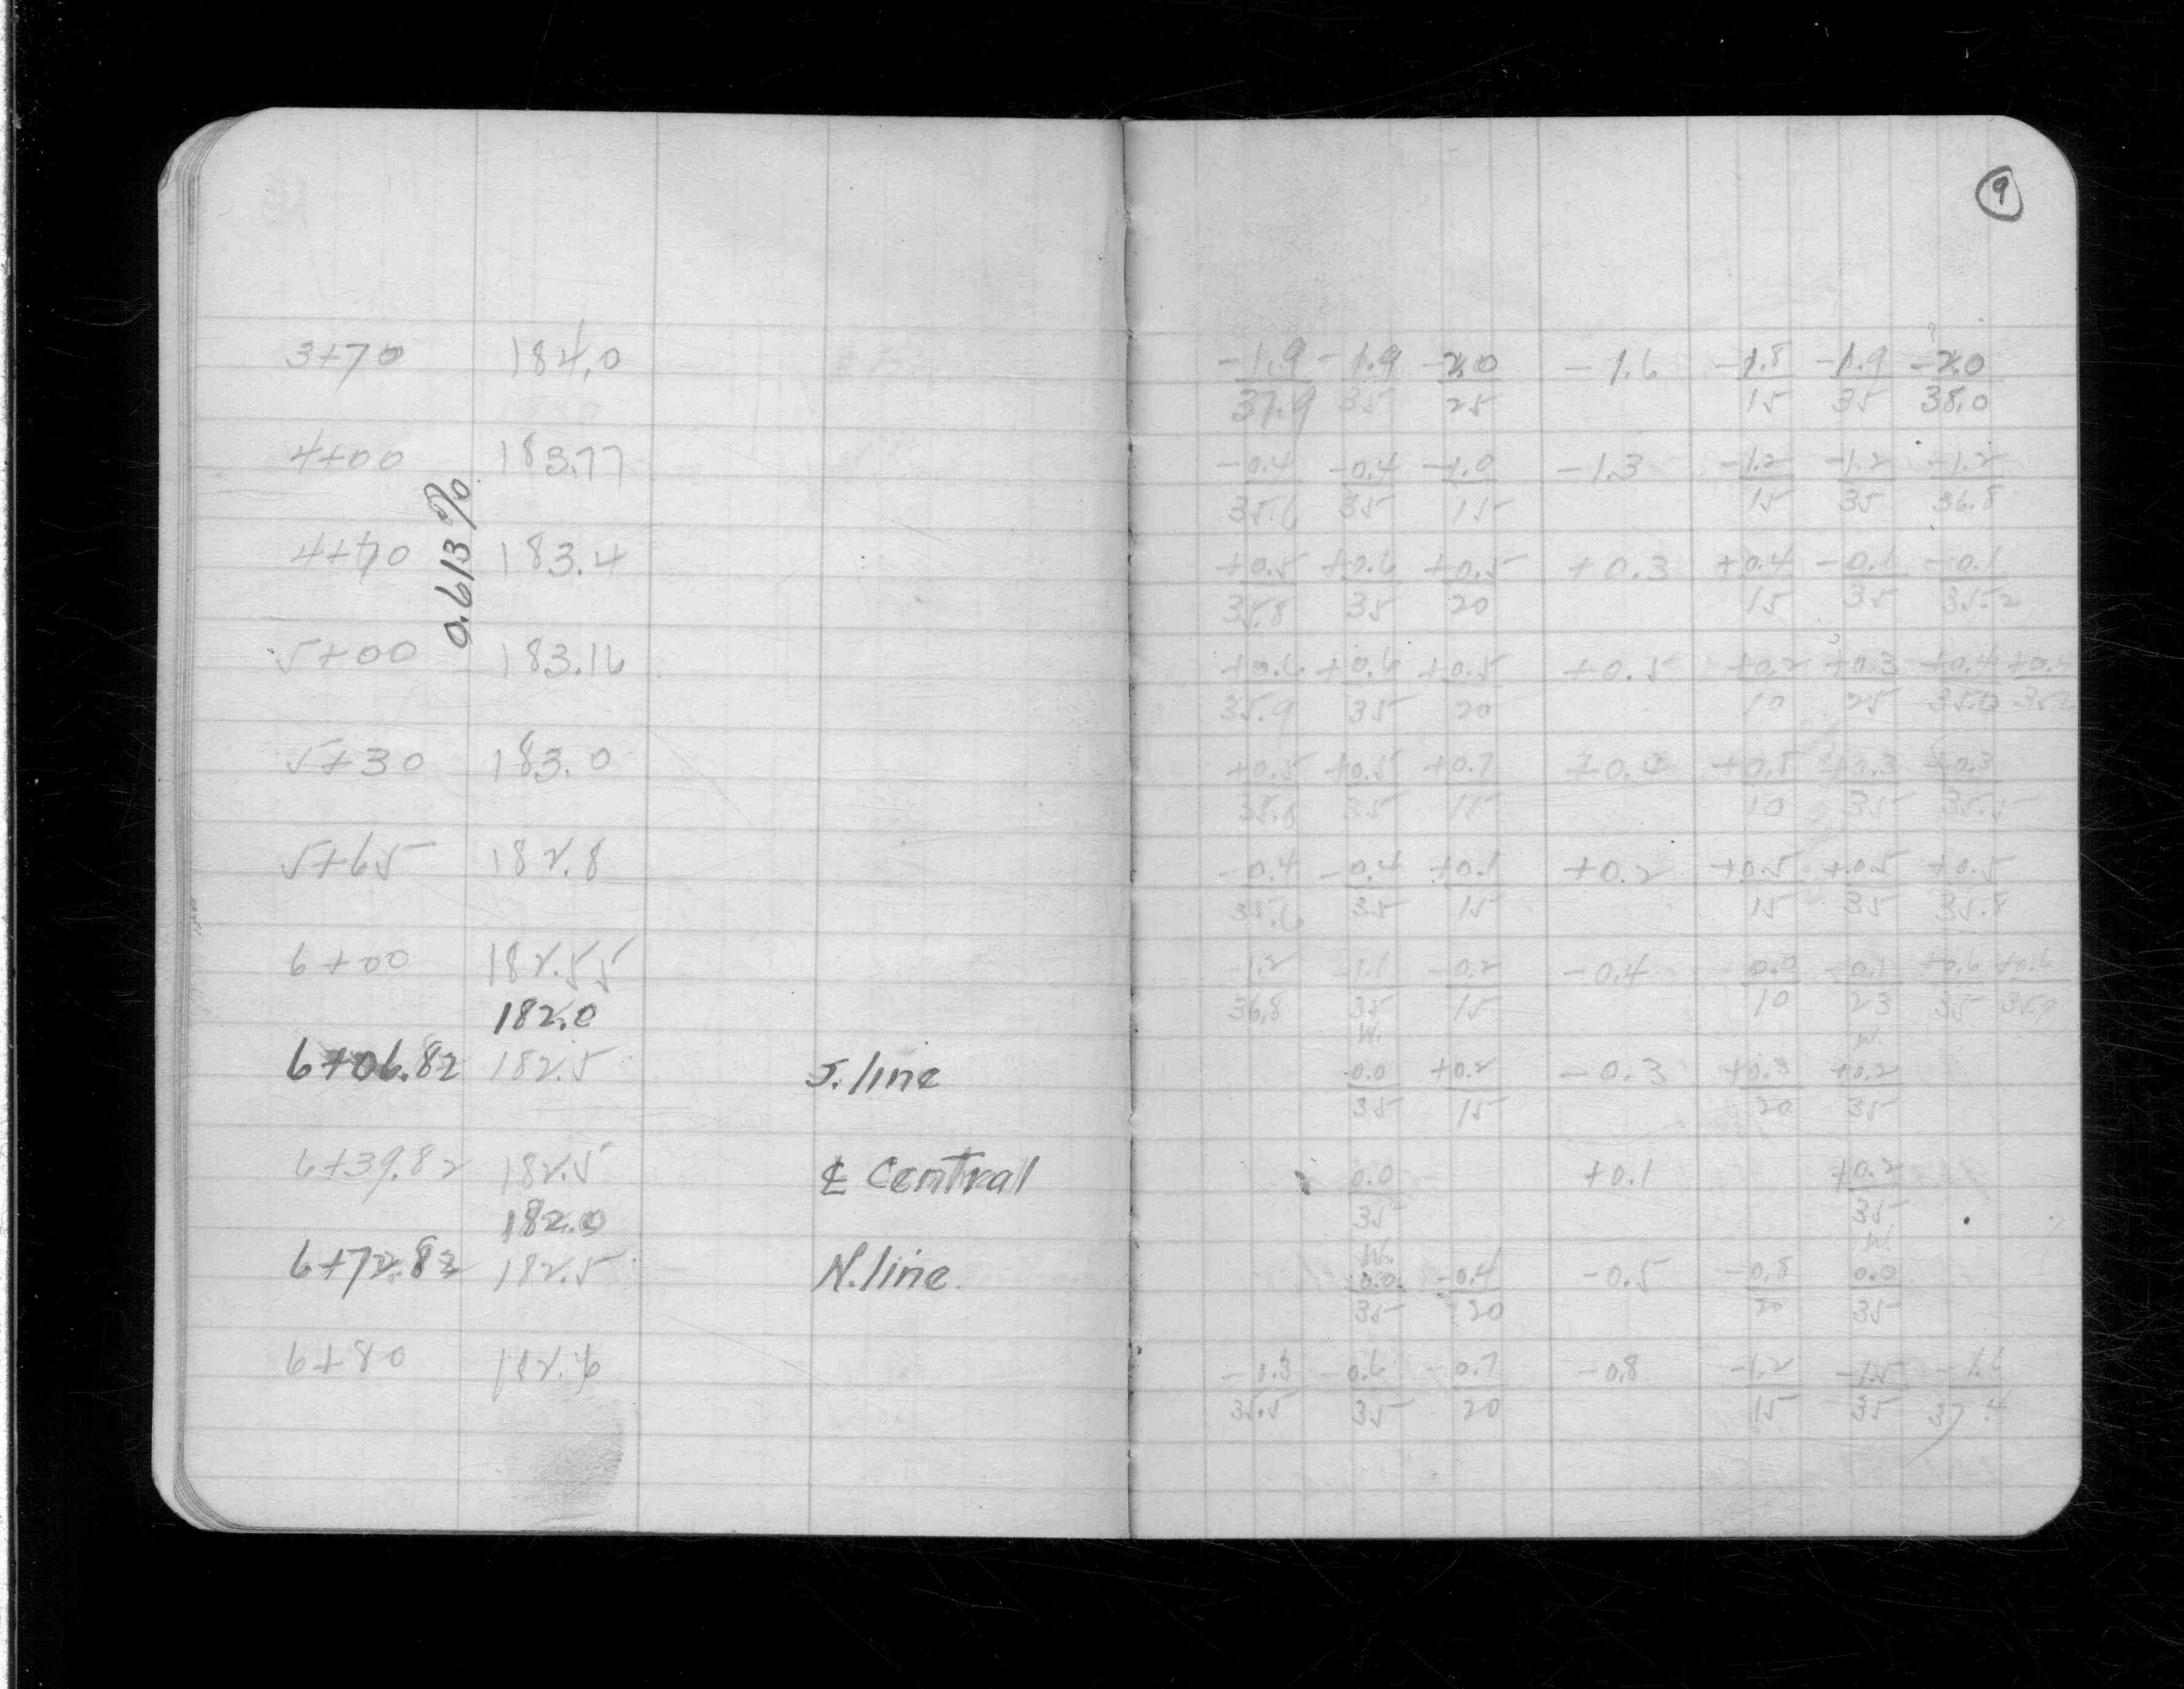 9
3+70 184.0 -1.9 -1.9 -2.0 -1.6 -1.8 -1.9 -2.0
37.9 35 25 15 35 38.0
4+00 183.77 -0.4 -0.4 -1.0 -1.3 -1.2 -1.2 -1.2
35.6 35 15 15 35 36.8
0.613%
4+40 183.4 +0.5 +0.6 +0.5 +0.3 +0.4 -0.1 -0.1
35.8 35 20 15 35 35.2
5+00 183.16 +0.6 +0.6 +0.5 +0.5 +0.2 +0.3 +0.4
35.9 35 20 10 25 35.6
5+30 183.0 +0.5 +0.5 +0.7 +0.4 +0.5 +0.3 +0.3
35.8 35 15 10 35 35.5
5+65 182.8 -0.4 -0.4 +0.1 +0.2 +0.5 +0.5 +0.5
35.6 35 15 15 35 35.8
6+00 182.55 -1.2 -1.1 -0.2 -0.4 0.0 -0.1 +0.6 +0.6
36.8 35 15 10 23 35 35.9
182.0 W. W.
6+06.82 182.5 S. line 0.0 +0.2 -0.3 +0.3 +0.2
35 15 20 35
6+39.82 182.5 ℄ Central 0.0 +0.1 +0.2
35 35
182.0 W. W.
6+72.82 182.5 N. line. 0.0 -0.4 -0.5 -0.8 0.0
35 20 20 35
6+80 182.6 -0.3 -0.6 -0.7 -0.8 -1.2 -1.5 -1.6
35.5 35 20 15 35 37.4